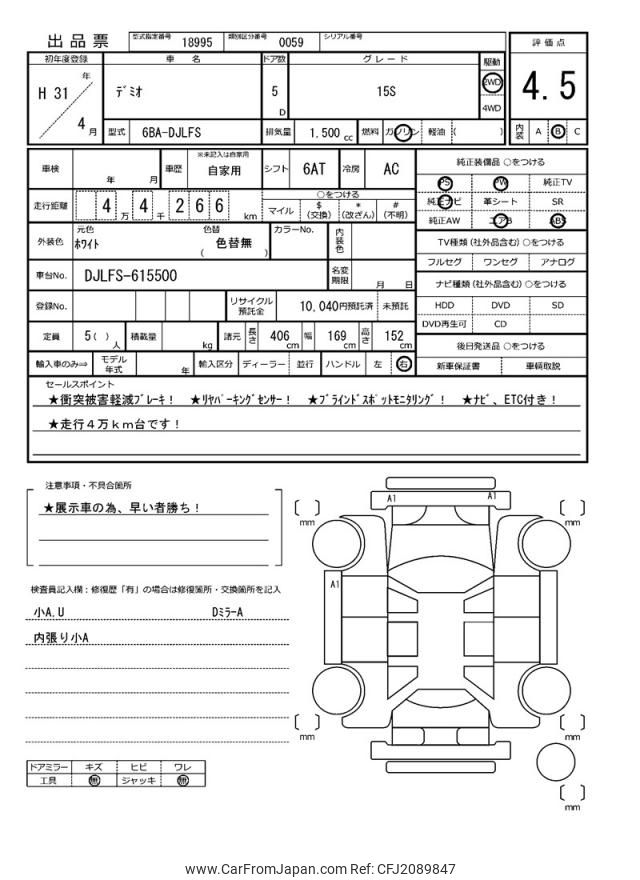 出品票 型式指定番号 18995 類別区分番号 0059 シリアル番号
評価点
4.5
内装 A B C
初年度登録 車名 ドア数 グレード 駆動
H 31 年 4 月 ﾃﾞﾐｵ 5 D 15S 2WD
4WD
型式 6BA-DJLFS 排気量 1.500 cc 燃料 ガソリン 軽油 ( )
車検 年 月 車歴 ※未記入は自家用 自家用 シフト 6AT 冷房 AC
走行距離 4 万 4 千 2 6 6 km
○をつける
マイル $ (交換) * (改ざん) # (不明)
外装色 元色 ﾎﾜｲﾄ 色替 ( 色替無 ) カラーNo. 内装色
車台No. DJLFS-615500 名変期限 月 日
登録No. リサイクル預託金 10,040円預託済 未預託
定員 5( ) 人 積載量 kg 諸元 長さ 406 cm 幅 169 cm 高さ 152 cm
輸入車のみ⇒ モデル年式 年 輸入区分 ディーラー 並行 ハンドル 左 右
純正装備品 ○をつける
PS PW 純正TV
純正ナビ 革シート SR
純正AW エアB ABS
TV種類 (社外品含む) ○をつける
フルセグ ワンセグ アナログ
ナビ種類 (社外品含む) ○をつける
HDD DVD SD
DVD再生可 CD
後日発送品 ○をつける
新車保証書 車輌取説
セールスポイント
★衝突被害軽減ﾌﾞﾚｰｷ！ ★ﾘﾔﾊﾟｰｷﾝｸﾞｾﾝｻｰ！ ★ﾌﾞﾗｲﾝﾄﾞｽﾎﾟｯﾄﾓﾆﾀﾘﾝｸﾞ！ ★ﾅﾋﾞ、ETC付き！
★走行４万ｋｍ台です！
注意事項・不具合箇所
★展示車の為、早い者勝ち！
検査員記入欄：修復歴「有」の場合は修復箇所・交換箇所を記入
小A.U DﾐﾗｰA
内張り小A
ドアミラー キズ ヒビ ワレ
工具 無 ジャッキ 無
A1 A1
A1
mm mm
mm mm
mm
www.CarFromJapan.com Ref: CFJ2089847